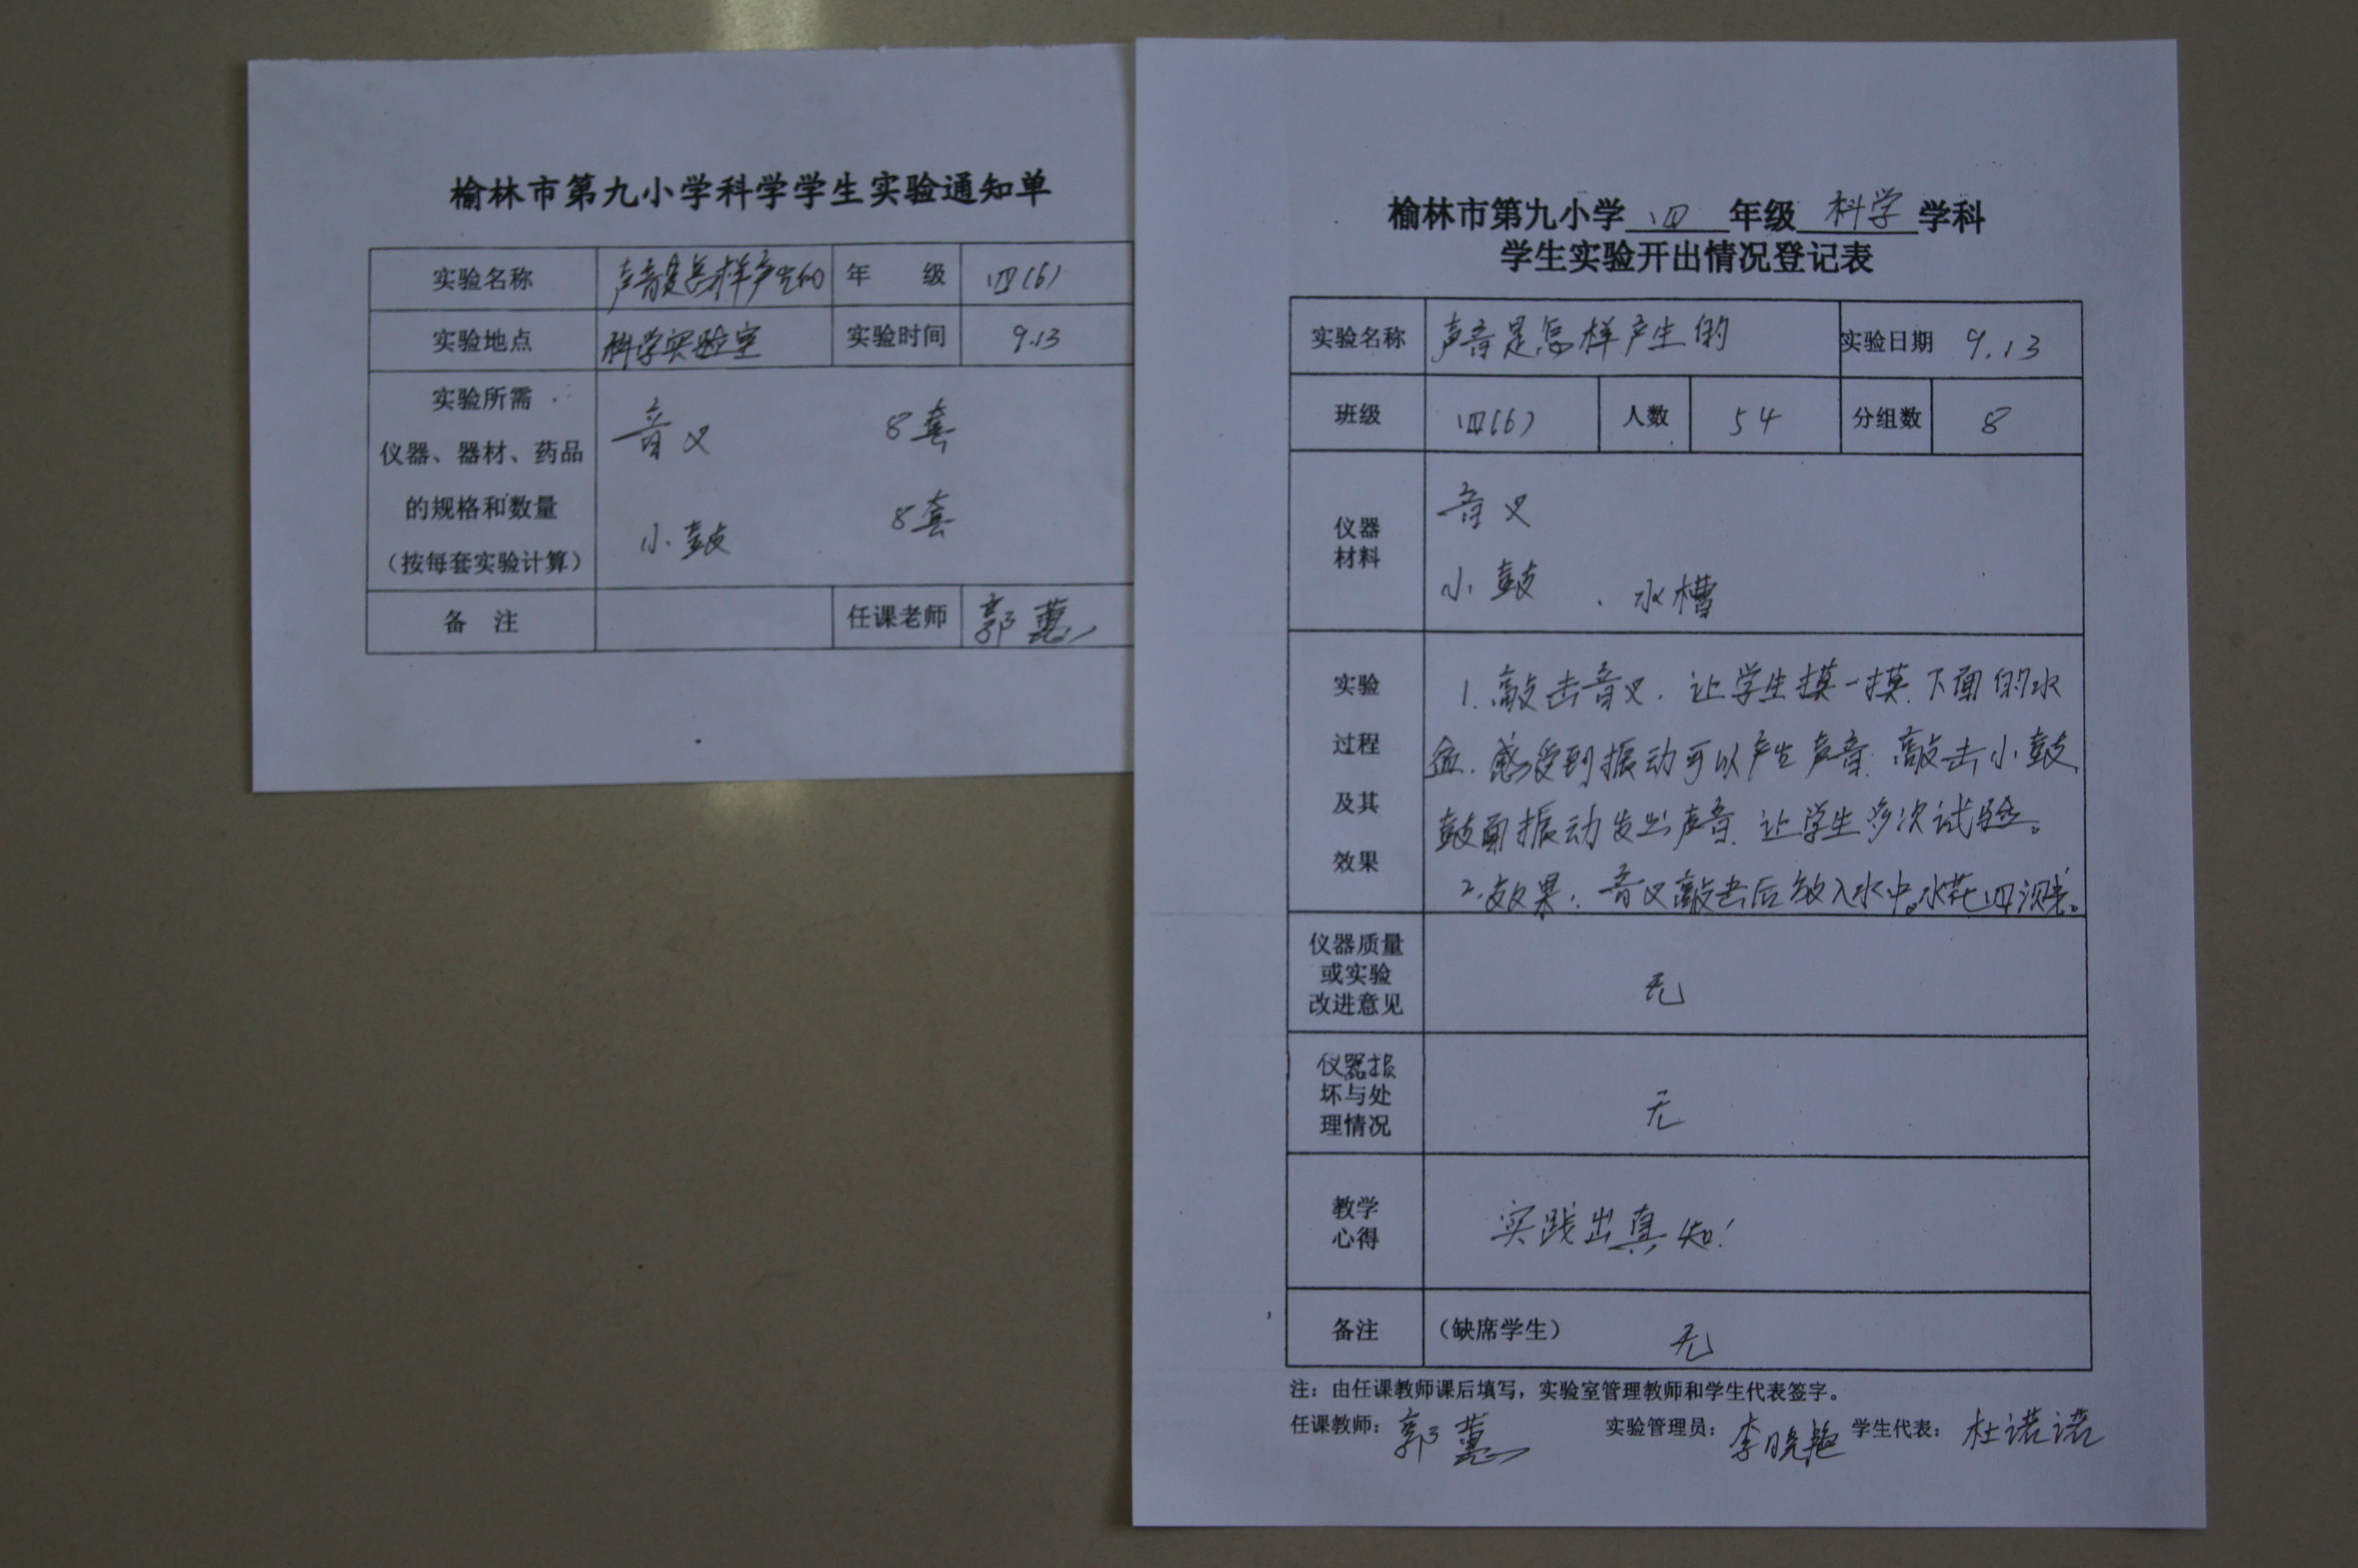 榆林市第九小学科学学生实验通知单
实验名称 声音是怎样产生的 年 级 四(6)
实验地点 科学实验室 实验时间 9.13
实验所需
仪器、器材、药品
的规格和数量
(按每套实验计算)
音叉 8套
小鼓 8套
备 注 任课老师 郭蕙
榆林市第九小学 四 年级 科学 学科
学生实验开出情况登记表
实验名称 声音是怎样产生的 实验日期 9.13
班级 四(6) 人数 54 分组数 8
仪器
材料
音叉
小鼓 、水槽
实验
过程
及其
效果
1.敲击音叉.让学生摸一摸.下面的水
盆.感受到振动可以产生声音.敲击小鼓,
鼓面振动发出声音.让学生多次试验。
2.效果:音叉敲击后放入水中。水花四溅。
仪器质量
或实验
改进意见
无
仪器损
坏与处
理情况
无
教学
心得
实践出真知!
备注 (缺席学生) 无
注:由任课教师课后填写,实验室管理教师和学生代表签字。
任课教师:郭蕙 实验管理员:李晓艳 学生代表:杜诺诺